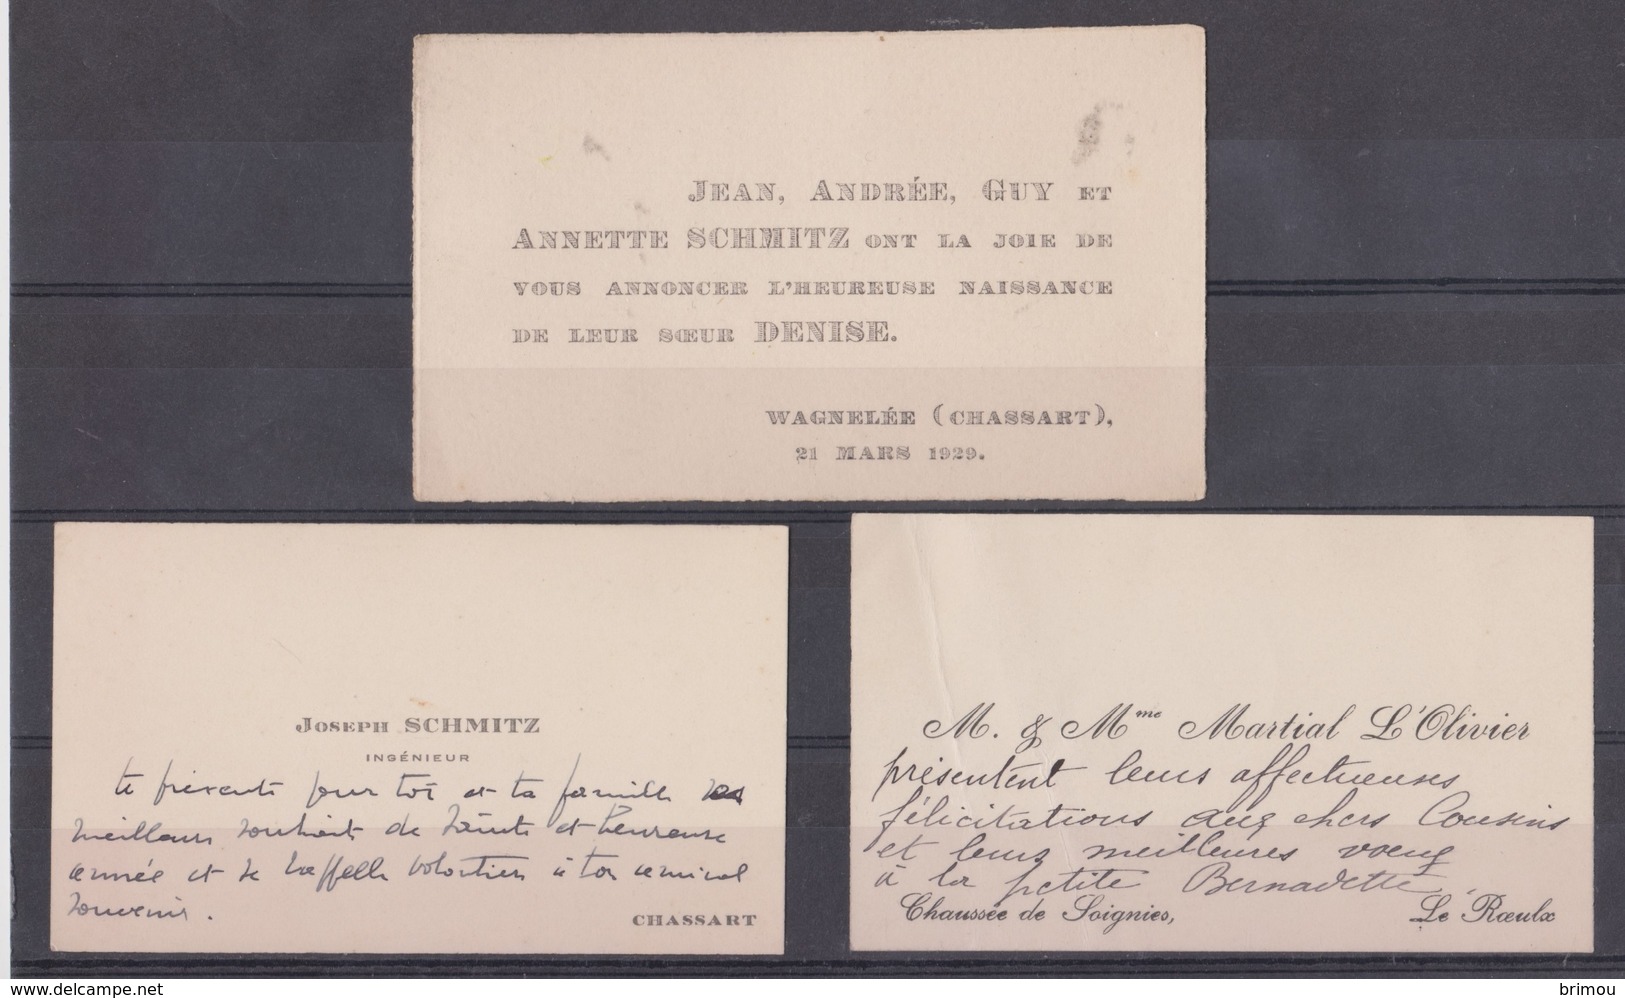 JEAN, ANDRÉE, GUY ET
ANNETTE SCHMITZ ONT LA JOIE DE
VOUS ANNONCER L'HEUREUSE NAISSANCE
DE LEUR SŒUR DENISE.
WAGNELÉE (CHASSART),
21 MARS 1929.
JOSEPH SCHMITZ
INGÉNIEUR
te présente pour toi et ta famille ses
meilleurs souhaits de Sainte et heureuse
année et se rappelle volontiers à ton amical
souvenir.
CHASSART
M. & Mme Martial L'Olivier
présentent leurs affectueuses
félicitations aux chers Cousins
et leurs meilleures vœux
à la petite Bernadette
Chaussée de Soignies, Le Rœulx
www.delcampe.net
brimou